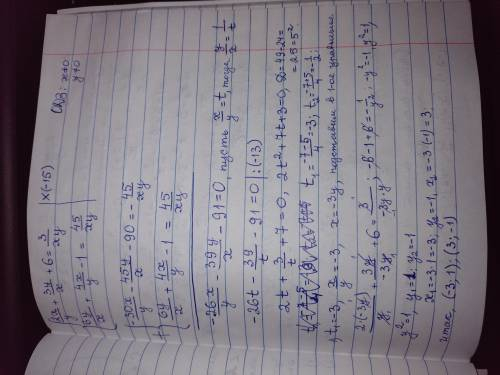 ОДЗ: x≠0
y≠0
2x/y + 3y/x + 6 = 3/xy | x(-15)
6y/x + 4x/y - 1 = 45/xy
-30x/y - 45y/x - 90 = -45/xy
+ 6y/x + 4x/y - 1 = 45/xy
-26x/y - 39y/x - 91 = 0, пусть x/y = t, тогда y/x = 1/t
-26t - 39/t - 91 = 0 | :(-13)
2t + 3/t + 7 = 0, 2t² + 7t + 3 = 0, D = 49 - 24 =
= 25 = 5²
t₁ = -7-5/4 = -3; t₂ = -7+5/4 = -1/2;
1) t₁ = -3, x/y = -3, x = -3y, подставим в 1-ое уравнение
2·(-3y)/y + 3y/-3y + 6 = 3/-3y·y; -6 - 1 + 6 = -1/y²; -y² = -1, y² = 1,
y² = 1, y₁ = 1; y₂ = -1
x₁ = -3·1 = -3; y₂ = -1, x₂ = -3·(-1) = 3;
итак, (-3; 1); (3; -1)